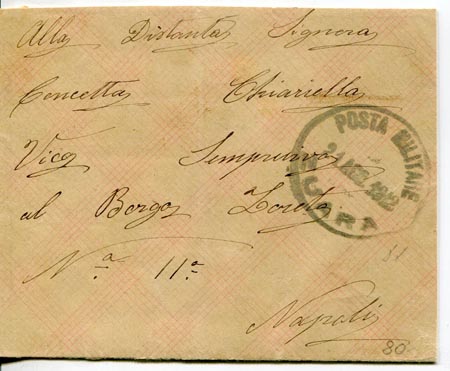 Alla Distanta Signora
Concetta Chiariella
Vico Sempreviva
al Borgo Loreto
Nª 11ª
Napoli
POSTA MILITARE
1912
80